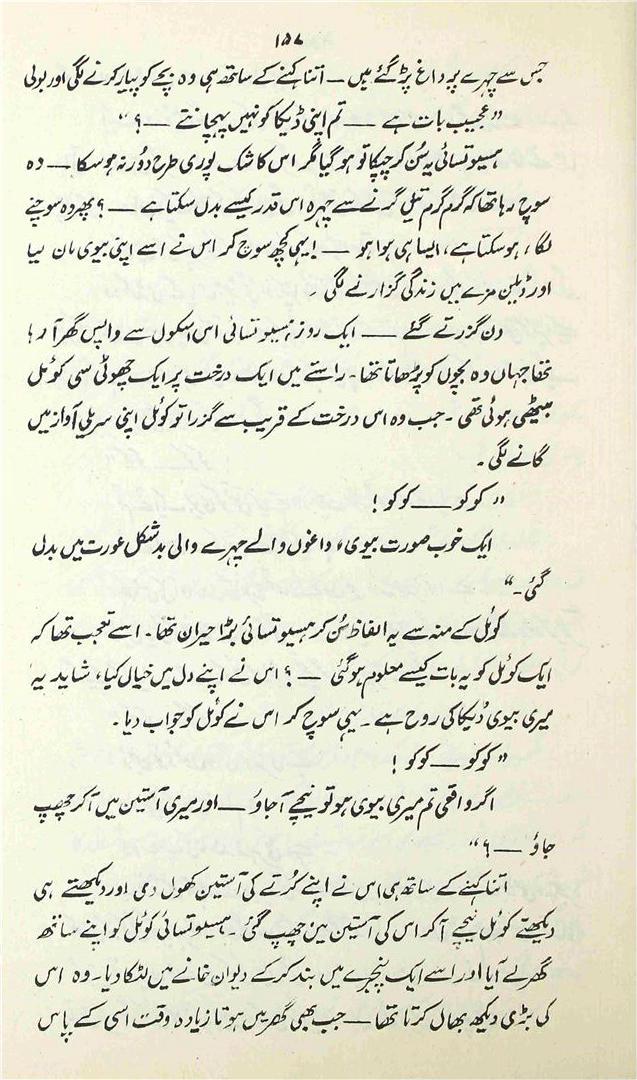 ۱۵۷
جس سے چہرے پہ داغ پڑ گئے ہیں — اتنا کہنے کے ساتھ ہی وہ بچے کو پیار کرنے لگی اور بولی
"عجیب بات ہے — تم اپنی ڈیکا کو نہیں پہچانتے —؟"
ہسیو تسائی یہ سُن کر چپکا تو ہو گیا مگر اس کا شک پوری طرح دُور نہ ہو سکا — وہ
سوچ رہا تھا کہ گرم گرم تیلی گرنے سے چہرہ اس قدر کیسے بدل سکتا ہے —؟ پھر وہ سوچنے
لگا، ہو سکتا ہے، ایسا ہی ہوا ہو — ! یہی کچھ سوچ کر اس نے اسے اپنی بیوی مان لیا
اور ڈبلن مزے میں زندگی گزارنے لگی۔
دن گزرتے گئے — ایک روز ہسیو تسائی اس اسکول سے واپس گھر آ رہا
تھا جہاں وہ بچوں کو پڑھاتا تھا۔ راستے میں ایک درخت پر ایک چھوٹی سی کوئل
بیٹھی ہوئی تھی۔ جب وہ اس درخت کے قریب سے گزرا تو کوئل اپنی سریلی آواز میں
گانے لگی۔
"کوکو — کوکو !
ایک خوب صورت بیوی، داغوں والے چہرے والی بدشکل عورت میں بدلی
گئی۔"
کوئل کے منہ سے یہ الفاظ سُن کر ہسیو تسائی بڑا حیران تھا۔ اسے تعجب تھا کہ
ایک کوئل کو یہ بات کیسے معلوم ہو گئی —؟ اس نے اپنے دل میں خیال کیا، شاید یہ
میری بیوی ڈیکا کی روح ہے۔ یہی سوچ کر اس نے کوئل کو جواب دیا۔
"کوکو — کوکو !
اگر واقعی تم میری بیوی ہو تو نیچے آ جاؤ — اور میری آستین میں آ کر چھپ
جاؤ —؟"
اتنا کہنے کے ساتھ ہی اس نے اپنے کُرتے کی آستین کھول دی اور دیکھتے ہی
دیکھتے کوئل نیچے آ کر اس کی آستین میں چھپ گئی۔ ہسیو تسائی کوئل کو اپنے ساتھ
گھر لے آیا اور اسے ایک پنجرے میں بند کر کے دیوان خانے میں لٹکا دیا۔ وہ اس
کی بڑی دیکھ بھال کرتا تھا — جب بھی گھر میں ہوتا زیادہ وقت اسی کے پاس